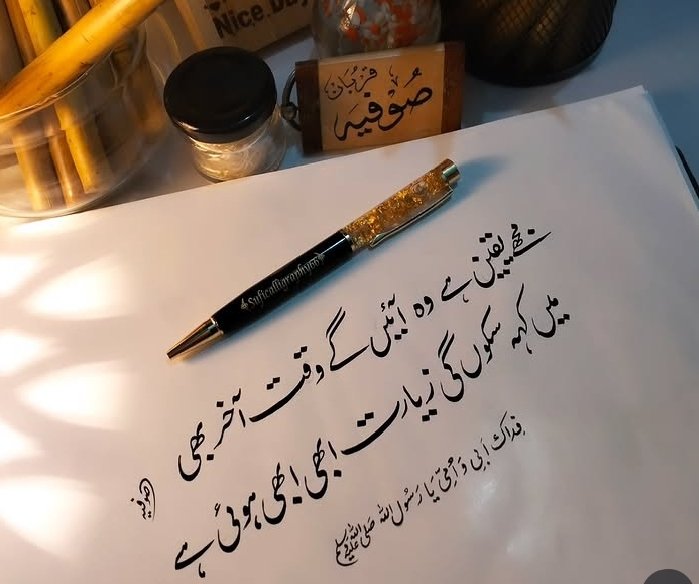 Nice Day
قربان
صُوفیہ
Suficalligraphy66
مجھے یقین ہے وہ آئیں گے وقت آخر بھی
میں کہہ سکوں گی زیارت ابھی ابھی ہوئی ہے
فداك ابي و أمي يا رسول الله صلى الله عليه وسلم
صوفیہ